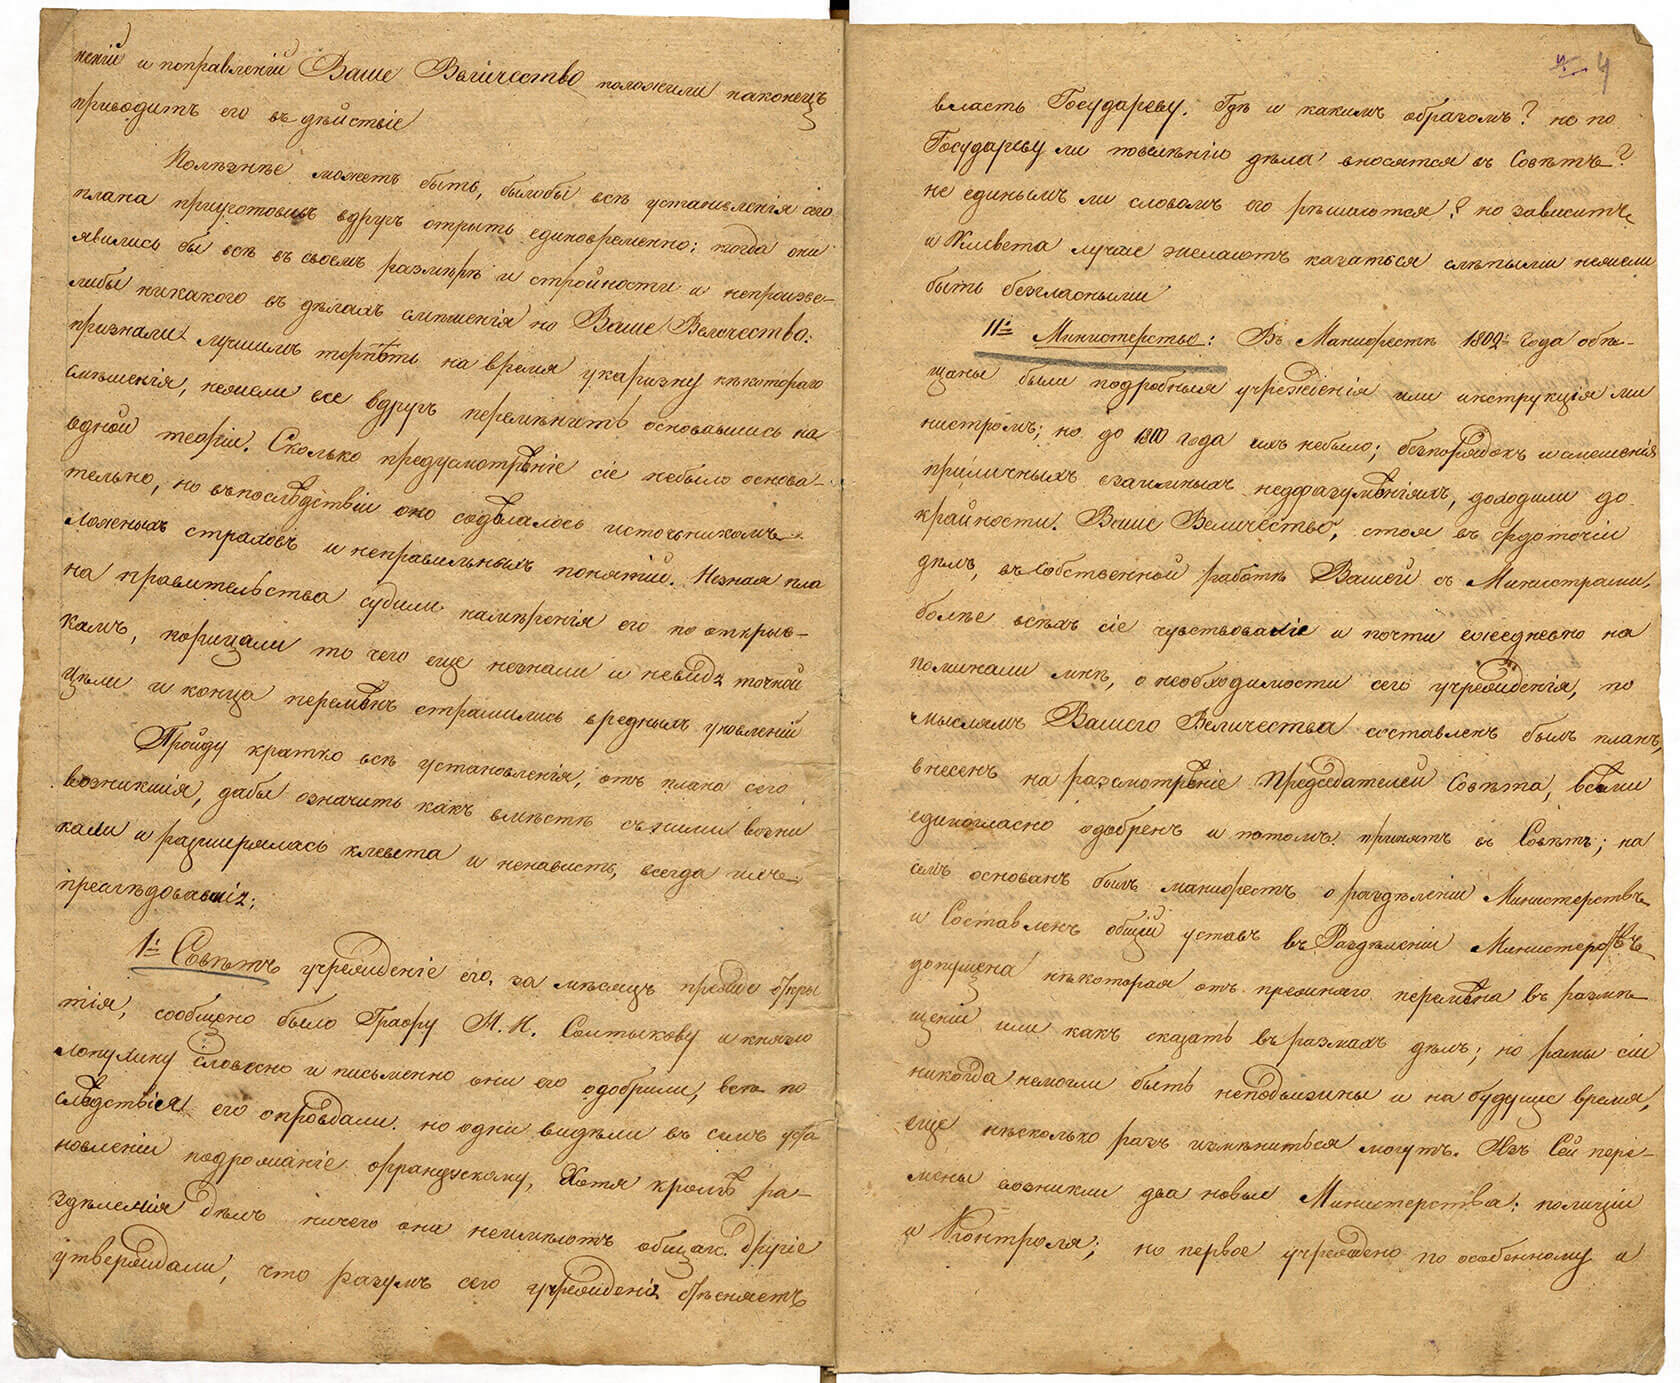 неній и поправленій Ваше Величество положили наконецъ
приводить его въ дѣйствіе
Полѣзнѣе можетъ быть, былобы всѣ установленія сего
плана приуготовивъ вдругъ открыть единовременно: тогда они
явились бы всѣ въ своемъ размѣрѣ и стройности и непроизве-
либы никакого въ дѣлахъ смѣшенія но Ваше Величество.
признали лучшимъ терпѣть на время укаризну нѣкотораго
смѣшенія, нежели все вдругъ перемѣнить основавшись на
одной теоріи. Сколько предусмотрѣніе сіе небыло основа-
тельно, но въпослѣдствіи оно содѣлалось источникомъ
ложныхъ страховъ и неправильныхъ понятій. Незная пла
на правительства судили намѣренія его по отрыв-
камъ, порицали то чего еще незнали и невидя точной
цѣли и конца перемѣнъ страшились вредныхъ уновленій
Пройду кратко всѣ установленія, отъ плана сего
возникшія, дабы означить какъ вмѣстѣ съ ними возни
кали и разширялась клевета и ненависть, всегда ихъ
преслѣдовавшія;
1е. Совѣтъ учрежденіе его, за мѣсяцъ прежде откры
тія, сообщено было Графу Н. И. Солтыкову и князю
лопухину словесно и письменно они его одобрили, всѣ по
слѣдствія его оправдали. но одни видѣли въ семъ уста
новленіи подрожаніе французскому, Хотя кромѣ ра-
здѣленія дѣлъ ничего они неимѣютъ общаго. другіе
утверждали, что разумъ сего учрежденія стѣсняетъ
4
власть Государеву. Гдѣ и какимъ образомъ? не по
Государеву ли повелѣнію дѣла вносятся въ Совѣтъ?
не единымъ ли словомъ его рѣшаются? но зависить
и Клевета лучше желаютъ казаться слѣпыми нежели
быть безгласными
IIе. Министерство: Въ Манифестѣ 1802го года обѣ-
щаны были подробныя учрежденія или инструкція ми
нистромъ; но до 1810 года ихъ небыло; безпорядокъ и смешенія
приличныхъ взаимныхъ недоразумѣніяхъ, доходили до
крайности. Ваше Величество, стоя въ средоточіи
дѣлъ, въ собственной работѣ Вашей съ Министрами,
болѣе всѣхъ сіе чувствовали и почти ежедневно на
поминали мнѣ, о необходимости сего учрежденія, по
мыслямъ Вашего Величества составленъ былъ планъ,
внесенъ на разсмотрѣніе Председателей Совѣта, всѣми
единогласно одобренъ и потомъ принятъ въ Совѣтъ; на
семъ основанъ былъ манифестъ о раздѣленіи Министерствъ
и Составленъ общій уставъ въ Раздѣленіи Министерствъ
допущена нѣкоторая отъ прежняго перемѣна въ размѣ
щеніи или какъ сказать въ рамахъ дѣлъ; но рамы сіи
никогда немогли быть неподвижны и на будуще время,
еще нѣсколько разъ измѣниться могутъ. Изъ Сей пере-
мѣны возникли два новые Министерства: полиціи
и Контроля; но первое учреждено по особенному и